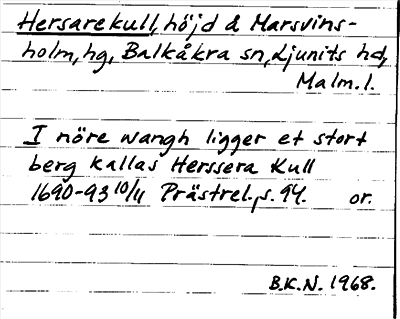 Hersarekull, höjd å Marsvins-
holm, hg, Balkåkra sn, Ljunits hd,
Malm.l.
I nöre wangh ligger et stort
berg kallas Herssera Kull
1690-93 10/11 Prästrel. s. 94. or.
B.K.N. 1968.